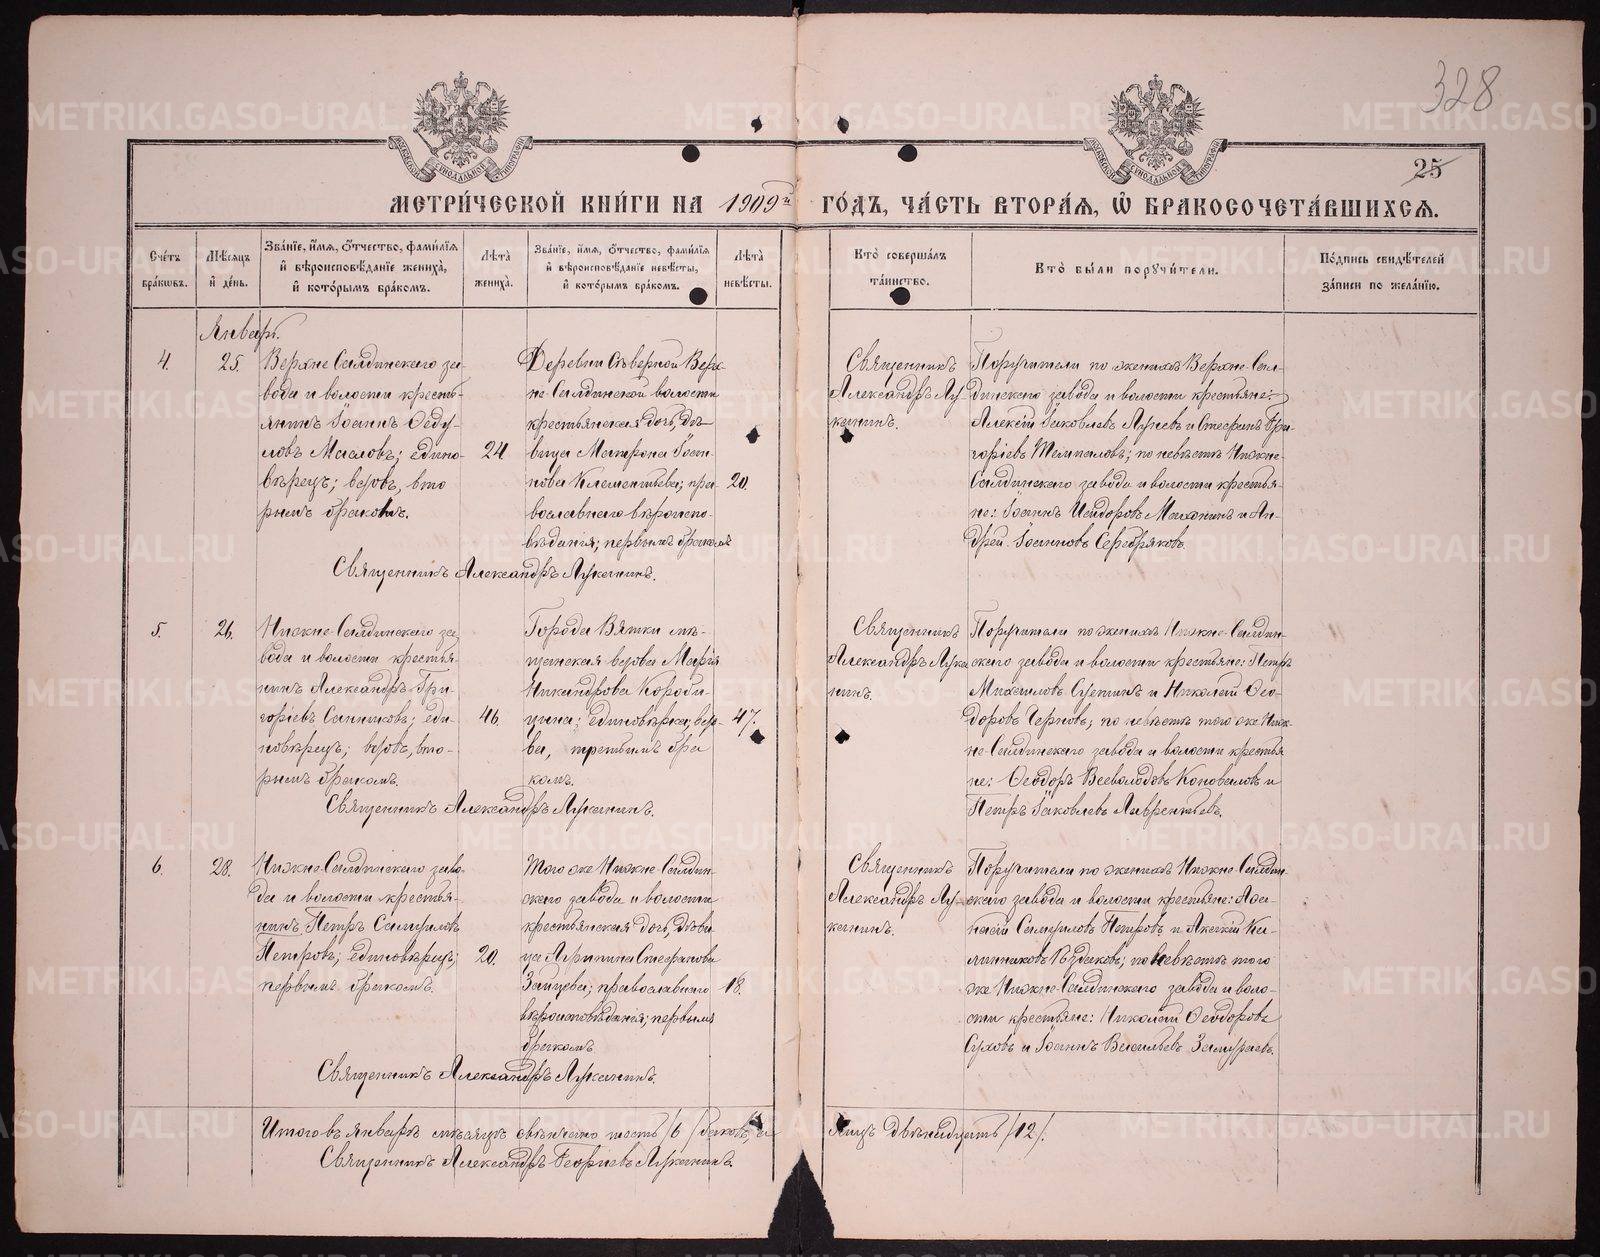 328
25
МЕТРИ́ЧЕСКОЙ КНИ́ГИ НА 1909й ГО́ДЪ, ЧА́СТЬ ВТОРА́Я, Ѿ БРАКОСОЧЕТА́ВШИХСЯ.
Сче́тъ бра́кѡвъ.
Мѣ́сяцъ и҆ де́нь.
Зва́нїе, и҆́мя, ѻ҆́тчество, фами́лїя
и҆ вѣроисповѣ́данїе жениха̀,
и҆ кото́рымъ бра́комъ.
Лѣта̀ жениха̀.
Зва́нїе, и҆́мя, ѻ҆́тчество, фами́лїя
и҆ вѣроисповѣ́данїе невѣ́сты,
и҆ кото́рымъ бра́комъ.
Лѣта̀ невѣ́сты.
Кто̀ соверша́лъ та́инство.
Кто̀ бы́ли порꙋчи́тели.
По́дпись свидѣ́телей за́писи по жела́нїю.
Январь.
4.
25.
Верхне-Салдинскаго за-
вода и волости кресть-
янинъ Іоаннъ Ѳеду-
ловъ Масловъ; едино-
вѣрецъ; вдовъ, вто
рымъ бракомъ.
24
Деревни Сѣверной Верх-
не-Салдинской волости
крестьянская дочь, дѣ-
вица Матрона Іоан-
нова Клементьева; пра-
вославнаго вѣроиспо-
вѣданія; первымъ бракомъ
20.
Священникъ Александръ Луканинъ.
Священникъ
Александръ Лу-
канинъ.
Поручители по женихѣ Верхне-Сал-
динскаго завода и волости крестьяне:
Алексій Іаковлевъ Луневъ и Стефанъ Гри-
горіевъ; по невѣстѣ Нижне-
Салдинскаго завода и волости крестья-
не: Іоаннъ Исидоровъ и Ан-
дрей Іоанновъ Серебряковъ.
5.
26.
Нижне-Салдинскаго за-
вода и волости крестья-
нинъ Александръ Гри-
горіевъ Санниковъ; еди-
новѣрецъ; вдовъ, вто-
рымъ бракомъ.
46.
Города Вятки мѣ-
щанская вдова Марія
Никандрова Короби-
цына; единовѣрка; вдо-
ва, третьимъ бра
комъ.
47.
Священникъ Александръ Луканинъ.
Священникъ
Александръ Лука
нинъ.
Поручители по женихѣ Нижне-Салдин-
скаго завода и волости крестьяне: Петръ
Михаиловъ и Николай Ѳео-
доровъ Черновъ; по невѣстѣ того же Ниж-
не-Салдинскаго завода и волости крестья
не: Ѳеодоръ Всеволодовъ Коноваловъ и
Петръ Іаковлевъ Лаврентьевъ.
6.
28.
Нижне-Салдинскаго заво-
да и волости крестья-
нинъ Петръ Самуиловъ
Петровъ; единовѣрецъ;
первымъ бракомъ.
20.
Того же Нижне-Салдин-
скаго завода и волости
крестьянская дочь, дѣви
ца Агрипина Стефанова
Зайцева; православнаго
вѣроисповѣданія; первымъ
бракомъ
18.
Священникъ Александръ Луканинъ.
Священникъ
Александръ Лу-
канинъ.
Поручители по женихѣ Нижне-Салдин-
скаго завода и волости крестьяне:
Самуиловъ Петровъ и Ка-
линниковъ; по невѣстѣ того
же Нижне-Салдинскаго завода и воло-
сти крестьяне: Николай Ѳеодоровъ
Суховъ и Іоаннъ Васильевъ Замураевъ.
Итого въ Январѣ мѣсяцѣ свѣнчано шесть /6/ браковъ, а
лицъ двѣнадцать /12/.
Священникъ Александръ Георгіевъ Луканинъ.